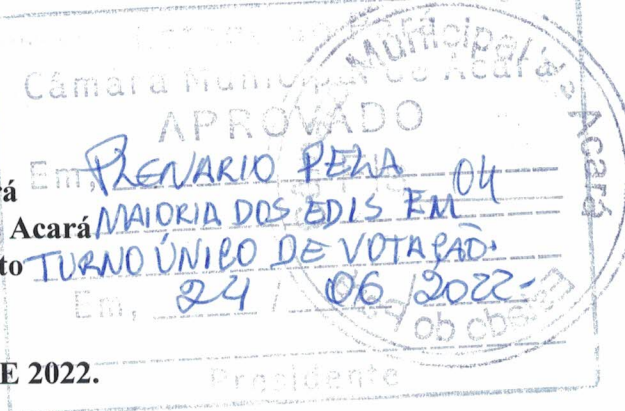 Câmara Municipal de Acará
APROVADO
Em, PLENARIO PELA
á
MAIORIA DOS EDIS EM 04
Acará
TURNO ÚNICO DE VOTAÇÃO.
to
Em, 24 / 06 / 2022-
E 2022.
Presidente
Municipal de Acará
Estado do Pará